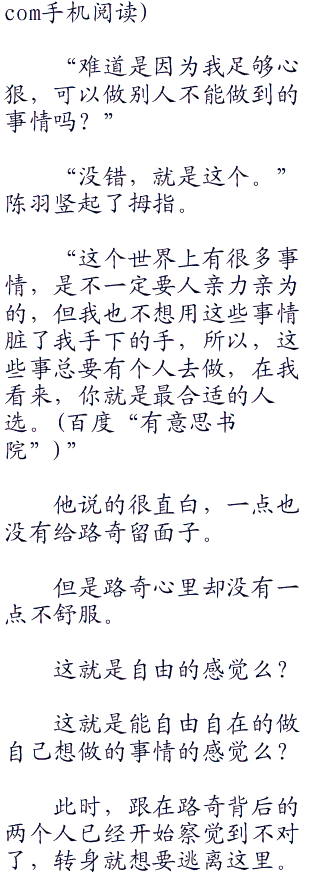 com手机阅读)
“难道是因为我足够心
狠，可以做别人不能做到的
事情吗？”
“没错，就是这个。”
陈羽竖起了拇指。
“这个世界上有很多事
情，是不一定要人亲力亲为
的，但我也不想用这些事情
脏了我手下的手，所以，这
些事总要有个人去做，在我
看来，你就是最合适的人
选。(百度“有意思书
院”)”
他说的很直白，一点也
没有给路奇留面子。
但是路奇心里却没有一
点不舒服。
这就是自由的感觉么？
这就是能自由自在的做
自己想做的事情的感觉么？
此时，跟在路奇背后的
两个人已经开始察觉到不对
了，转身就想要逃离这里。